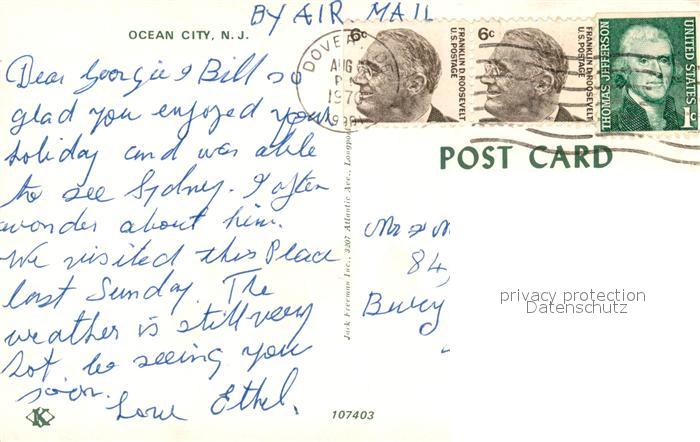 BY AIR MAIL
OCEAN CITY, N.J.
Dear Georgie & Bill so
glad you enjoyed your
holiday and was able
to see Sydney. I often
wonder about him.
We visited this Place
last Sunday. The
weather is still very
hot be seeing you
soon.
Love Ethel.
107403
K
Jack Freeman Inc., 3207 Atlantic Ave., Longport
DOVER, DE
AUG
P
1970
6c
FRANKLIN D. ROOSEVELT
U.S. POSTAGE
6c
FRANKLIN D. ROOSEVELT
U.S. POSTAGE
THOMAS JEFFERSON
UNITED STATES
1c
POST CARD
Mr & M
84,
Bury
privacy protection
Datenschutz